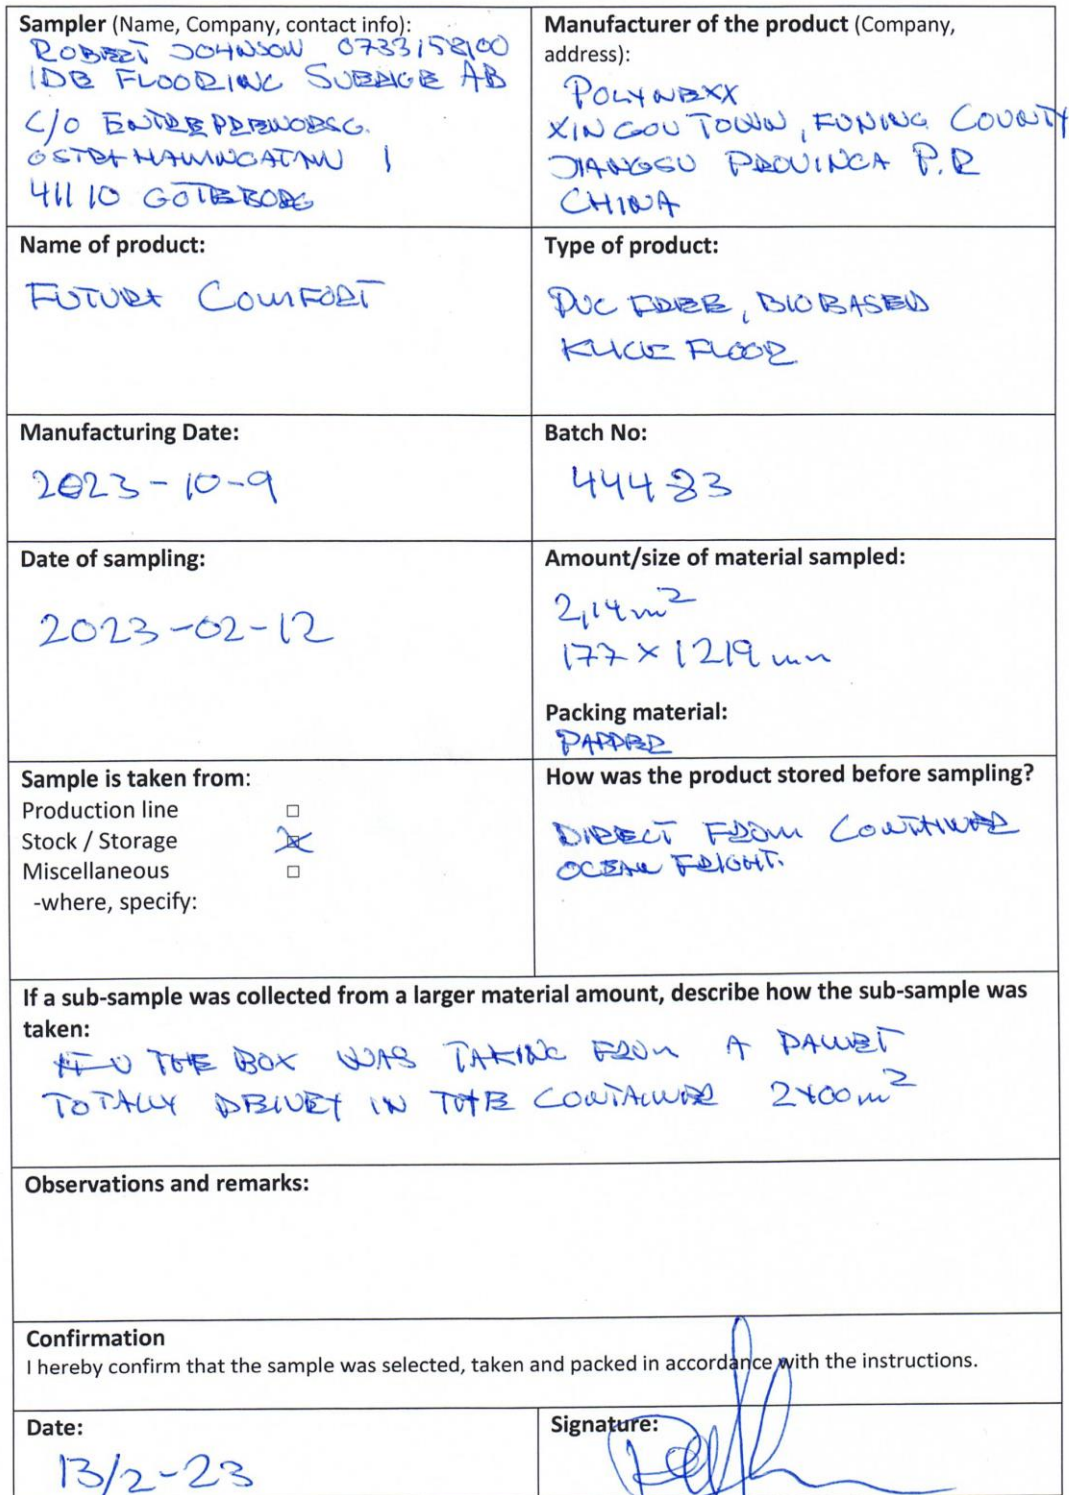 Sampler (Name, Company, contact info):
ROBERT JOHNSON 0733158100
IDE FLOORING SVERIGE AB
C/O ENTREPRENÖRSG.
ÖSTRA HAMNGATAN 1
411 10 GÖTEBORG
Manufacturer of the product (Company,
address):
POLYNEXX
XIN GOU TOWN, FUNING COUNTY
JIANGSU PROVINCA P.R
CHINA
Name of product:
FUTURA COMFORT
Type of product:
PVC FREE, BIOBASED
KLICK FLOOR
Manufacturing Date:
2023-10-9
Batch No:
444 83
Date of sampling:
2023-02-12
Amount/size of material sampled:
2,14 m²
177 X 1219 mm
Packing material:
PAPPER
Sample is taken from:
Production line
Stock / Storage
Miscellaneous
-where, specify:
How was the product stored before sampling?
DIRECT FROM
OCEAN FRIGHT.
If a sub-sample was collected from a larger material amount, describe how the sub-sample was
taken:
THE BOX WAS TAKING FROM A PALLET
TOTALLY IN THE 2400 m²
Observations and remarks:
Confirmation
I hereby confirm that the sample was selected, taken and packed in accordance with the instructions.
Date:
13/2-23
Signature: